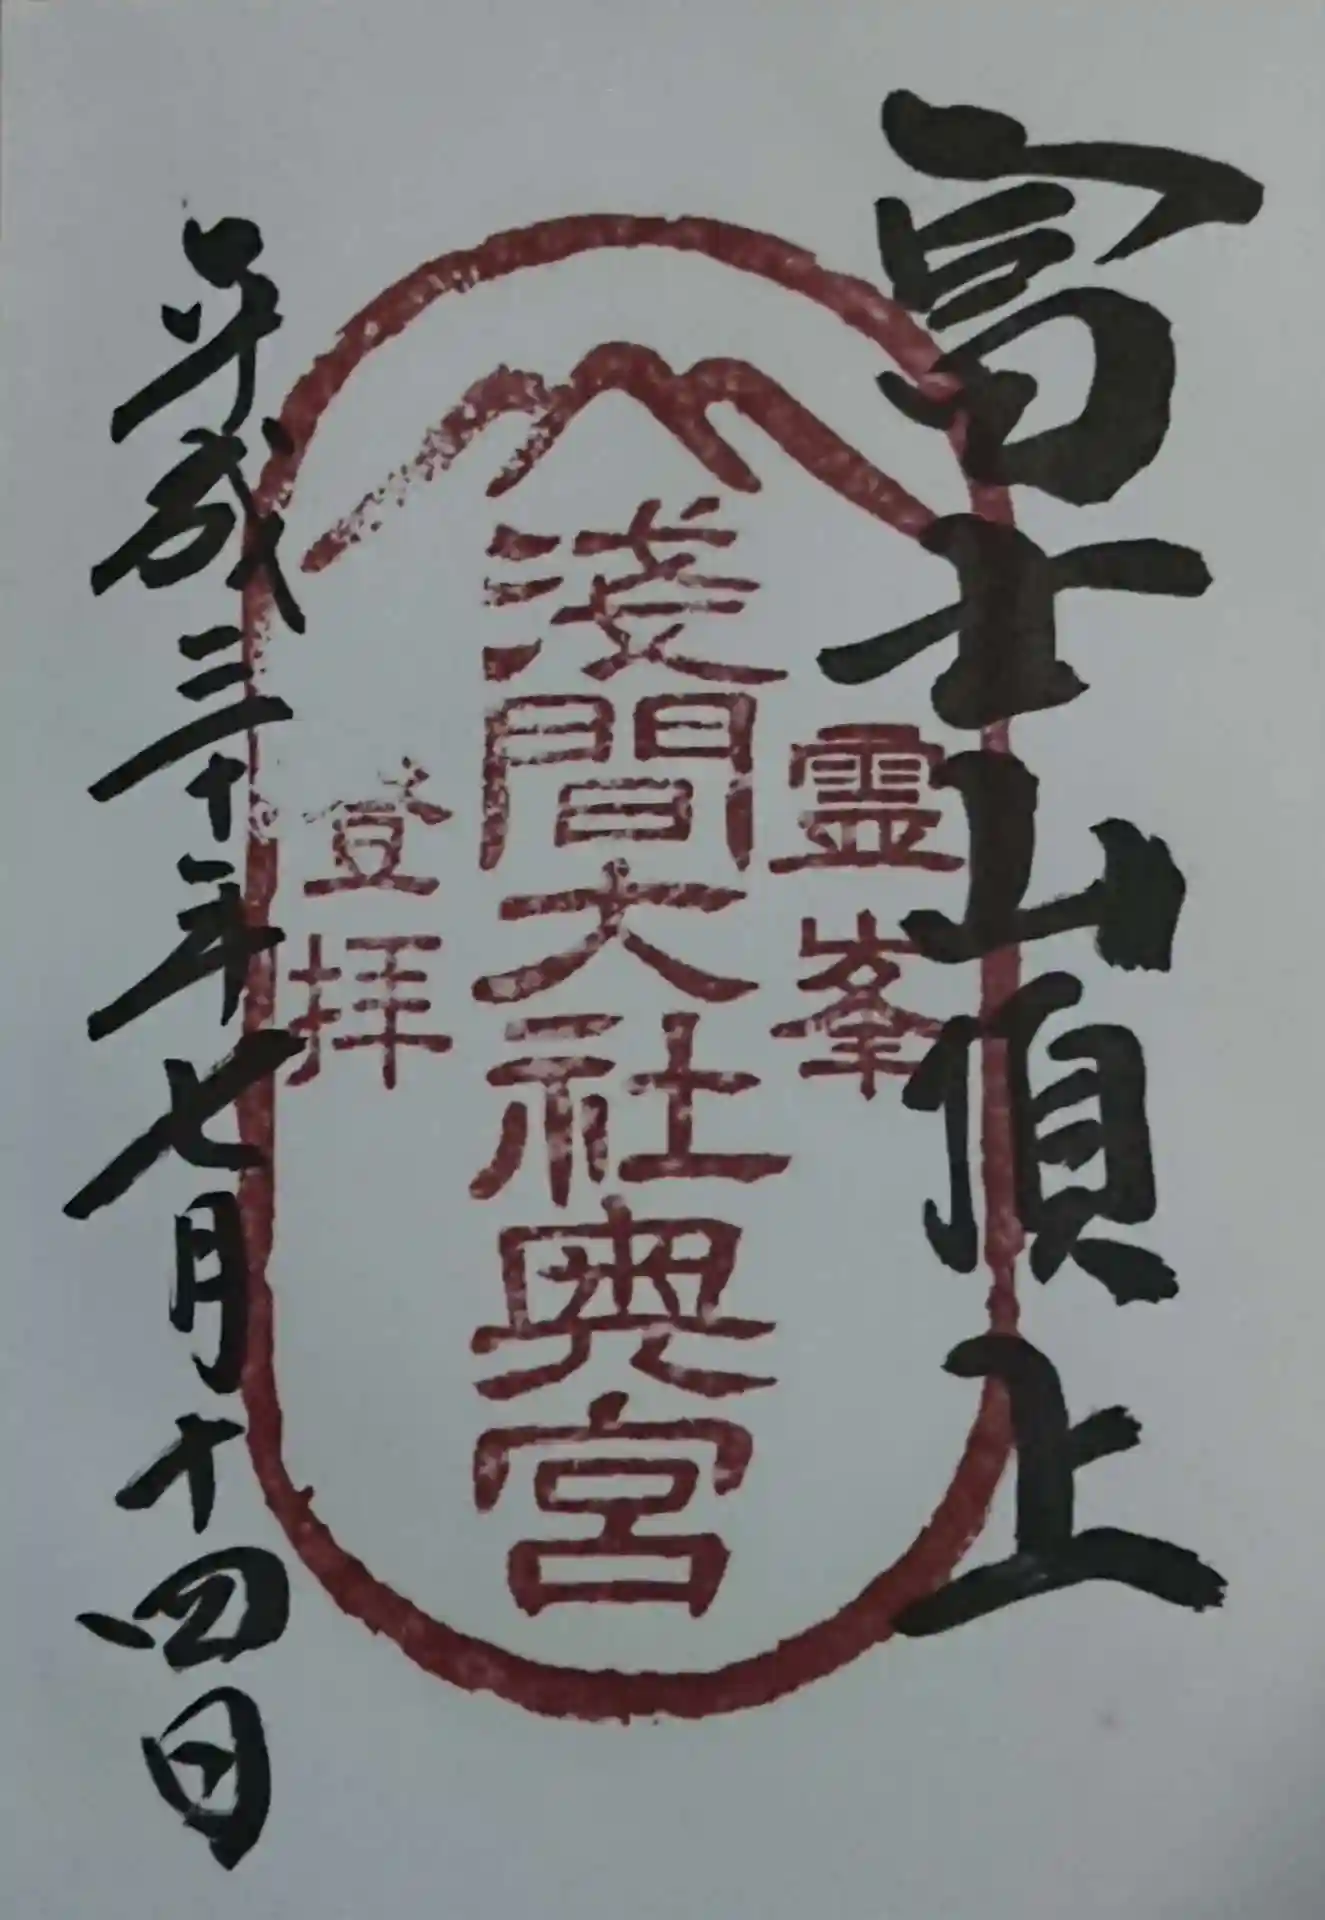 富士山頂上
霊峯
浅間大社奥宮
登拝
平成三十年七月十四日